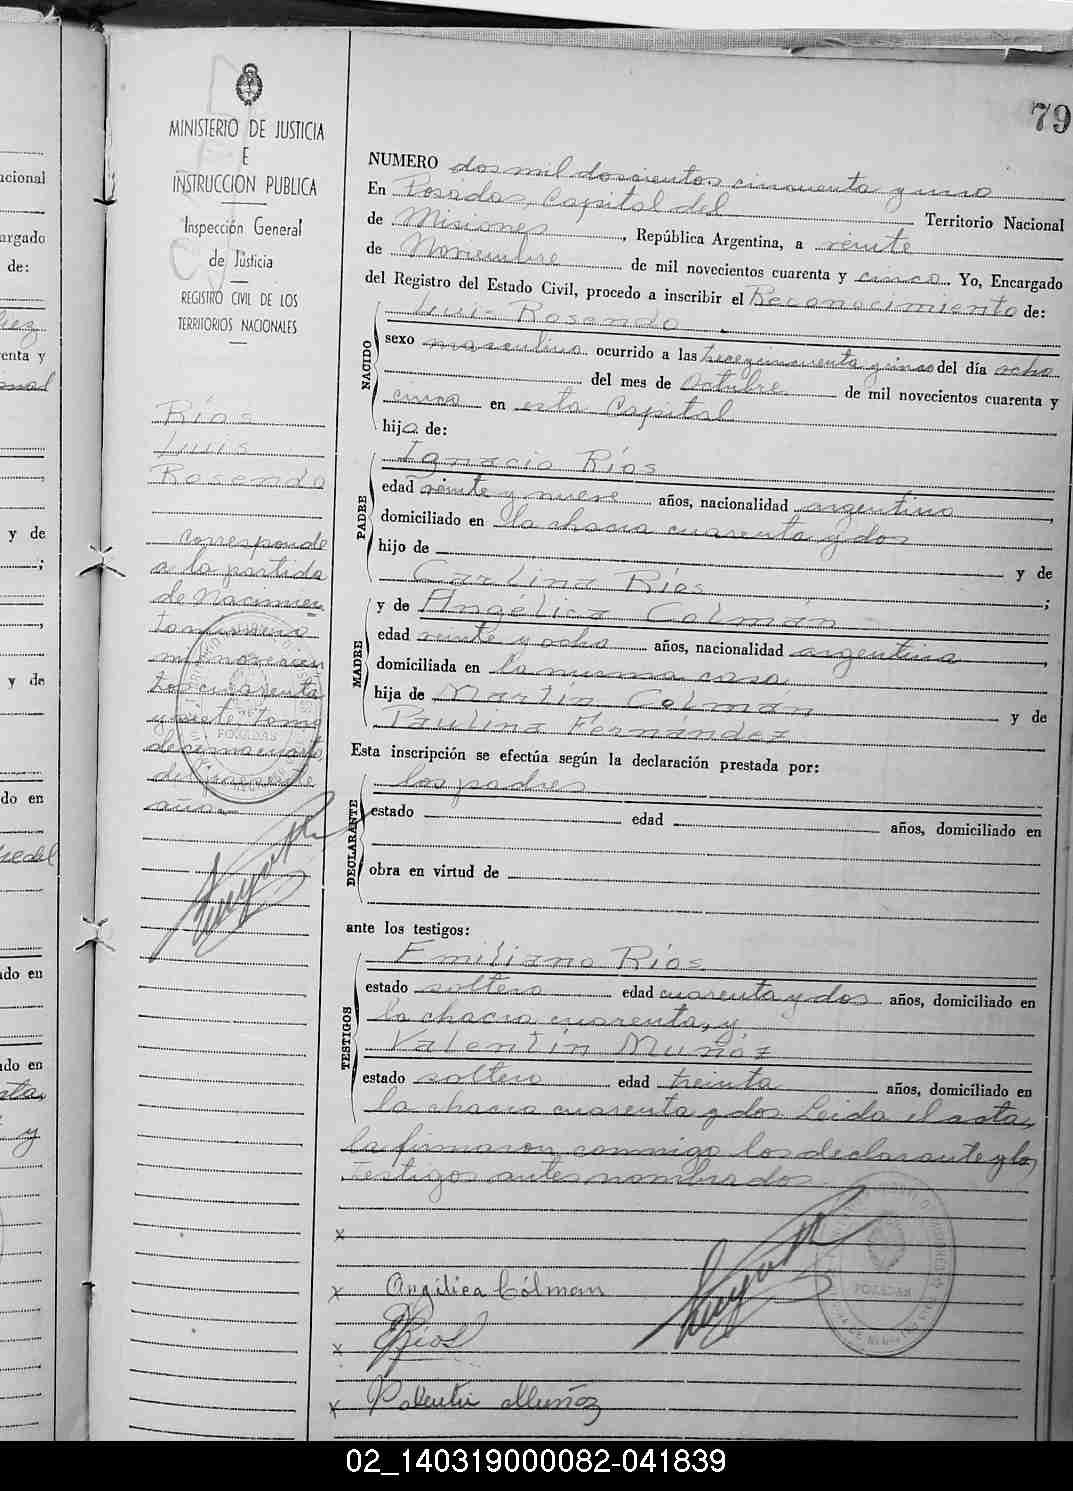 79
MINISTERIO DE JUSTICIA
E
INSTRUCCION PUBLICA
Inspección General
de Justicia
REGISTRO CIVIL DE LOS
TERRITORIOS NACIONALES
Ríos
Luis
Rosendo
Corresponde
a la partida
de Nacimien
to número
mil novecien
tos cuarenta
y siete tomo
decimo cuarto
del presente
año.
NUMERO dos mil doscientos cincuenta y uno
En Posadas, Capital del Territorio Nacional
de Misiones, República Argentina, a veinte
de Noviembre de mil novecientos cuarenta y cinco. Yo, Encargado
del Registro del Estado Civil, procedo a inscribir el Reconocimiento de:
NACIDO
Luis Rosendo
sexo masculino ocurrido a las trece y cincuenta y cinco del día ocho
del mes de Octubre de mil novecientos cuarenta y
cinco en esta Capital
hijo de:
PADRE
Ignacio Ríos
edad veinte y nueve años, nacionalidad argentino,
domiciliado en la chacra cuarenta y dos
hijo de y de
Carlina Ríos;
MADRE
y de Angélica Colmán
edad veinte y ocho años, nacionalidad argentina,
domiciliada en la misma casa
hija de Martín Colmán y de
Paulina Fernández
Esta inscripción se efectúa según la declaración prestada por:
DECLARANTE
los padres
estado edad años, domiciliado en
obra en virtud de
ante los testigos:
TESTIGOS
Emiliano Ríos
estado soltero edad cuarenta y dos años, domiciliado en
la chacra cuarenta, y
Valentín Muñóz
estado soltero edad treinta años, domiciliado en
la chacra cuarenta y dos Leida el acta,
la firmaron conmigo los declarante y los
testigos antes nombrados
x
x Angélica Cólman
x Rios
x Valentin Muñoz
POSADAS
POSADAS
02_140319000082-041839